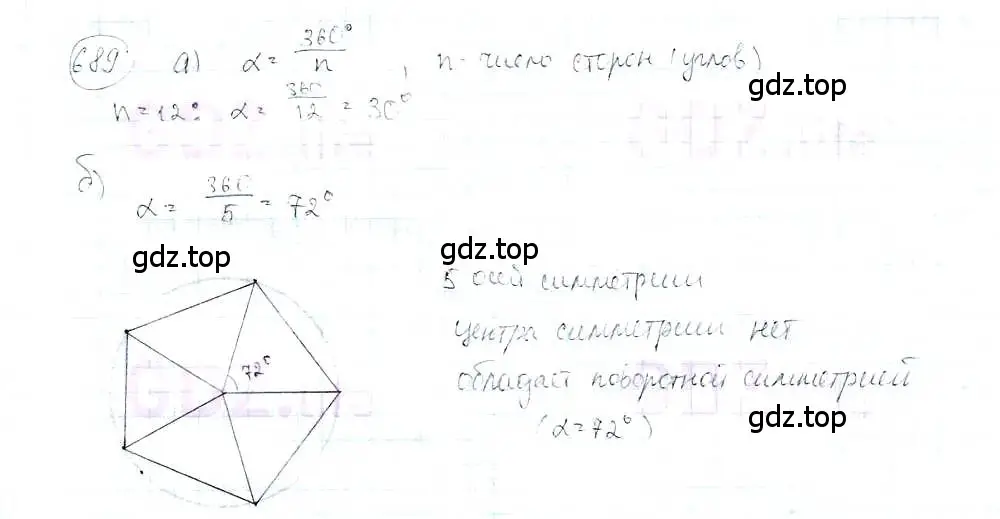 689. а) α = 360°/n, n - число сторон (углов)
n = 12: α = 360/12 = 30°
б)
α = 360/5 = 72°
gdz.top
gdz.top
5 осей симметрии
центра симметрии нет
72°
gdz.top
обладает поворотной симметрией
(α = 72°)
gdz.top